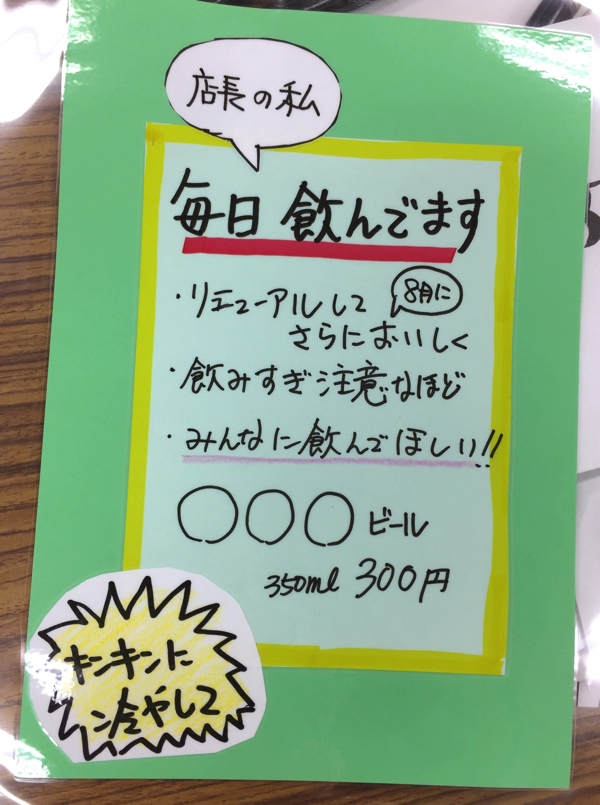 店長の私
毎日飲んでます
・リニューアルして
8月に
さらにおいしく
・飲みすぎ注意なほど
・みんなに飲んでほしい!!
○○○ビール
350ml 300円
キンキンに
冷やして